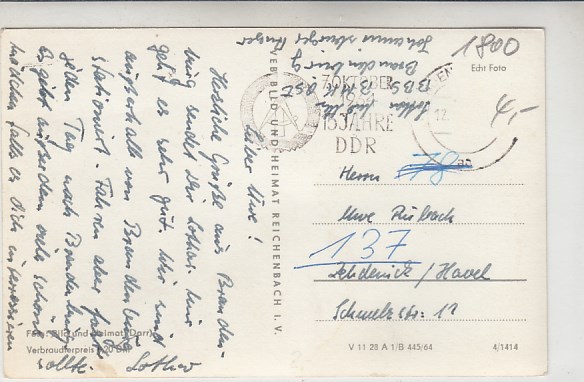 1800
Echt Foto
4,-
7.OKTOBER
15 JAHRE
DDR
VEB BILD UND HEIMAT REICHENBACH I. V.
Lothar
B B S
Brandenburg
Lieber Uwe!
Herzliche Grüße aus Branden-
burg sendet Dir Lothar. Mir
geht es sehr gut. Wir sind
außerhalb von Brandenburg
stationiert. Fahren aber fast
jeden Tag nach Brandenburg
es gibt außerdem viele schöne
Mädchen falls es Dich interessieren
sollte. Lothar
Herrn
78
Uwe
137
Zehdenick / Havel
Schmelzstr. 12
Foto: Bild und Heimat (Darr)
Verbraucherpreis 0,20 DM
V 11 28 A 1/B 445/64
4/1414